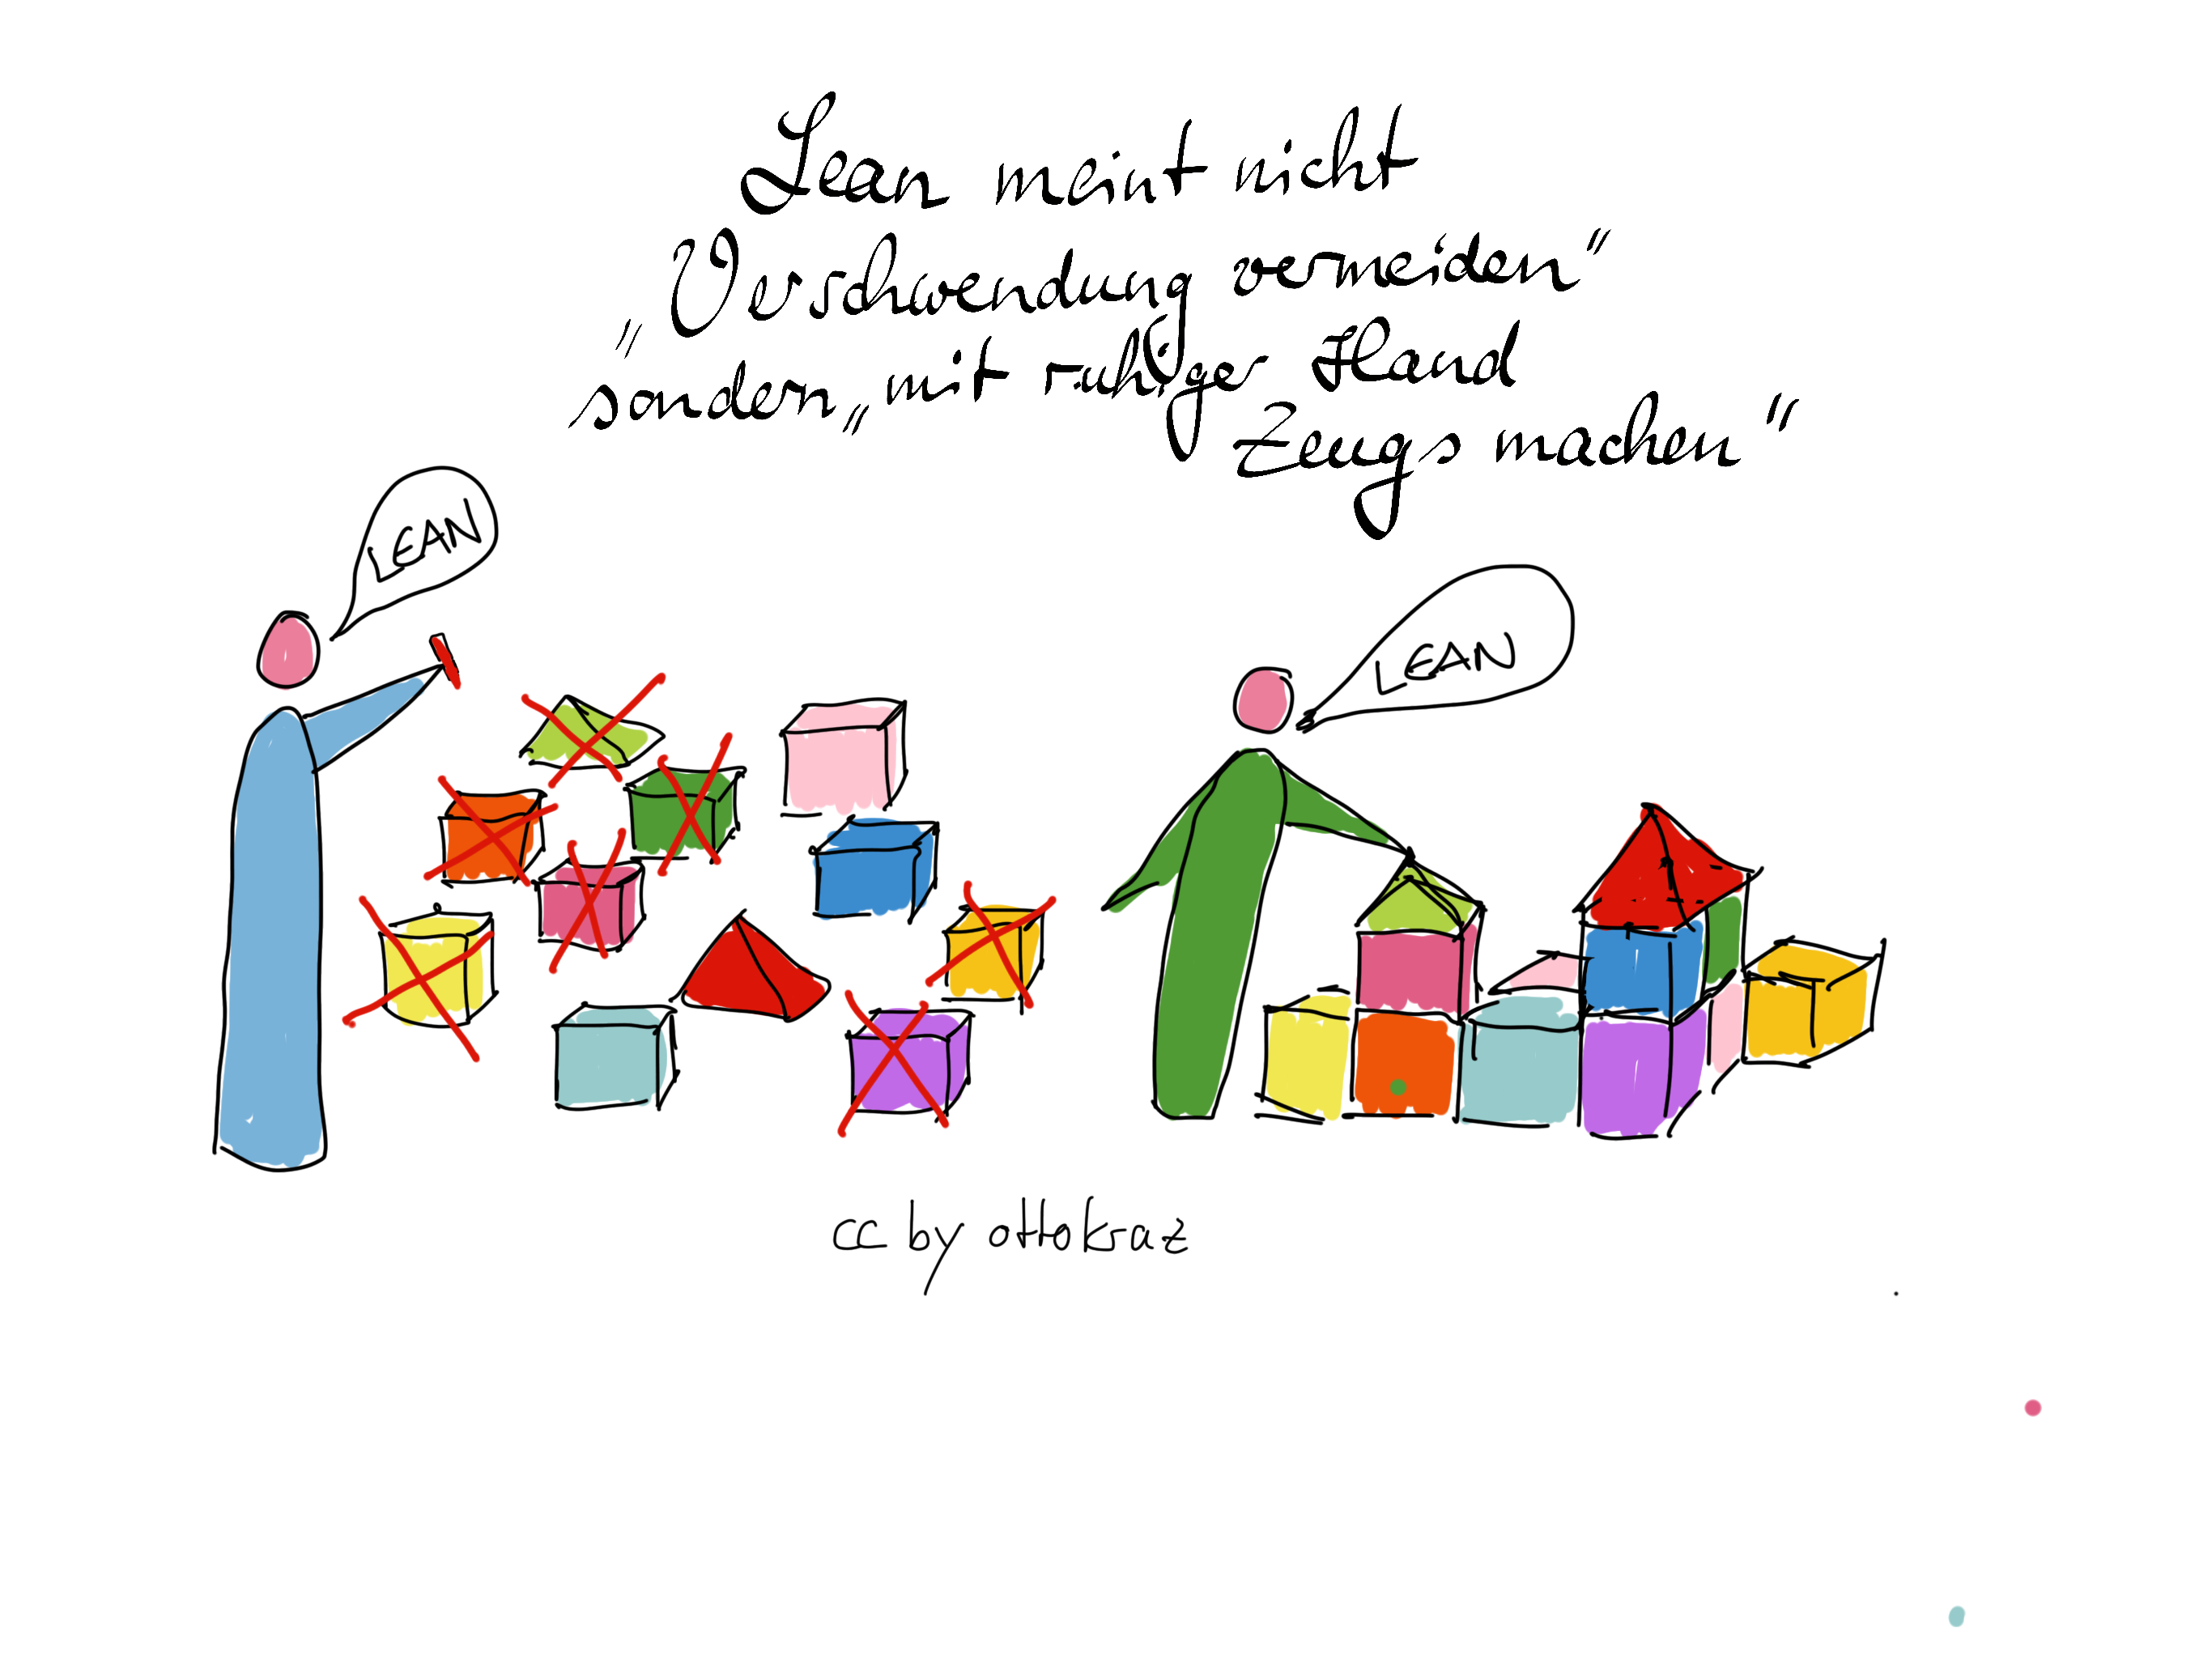 Lean meint nicht
„Verschwendung vermeiden“
sondern „mit ruhiger Hand
Zeugs machen“
LEAN
LEAN
cc by ottokraz